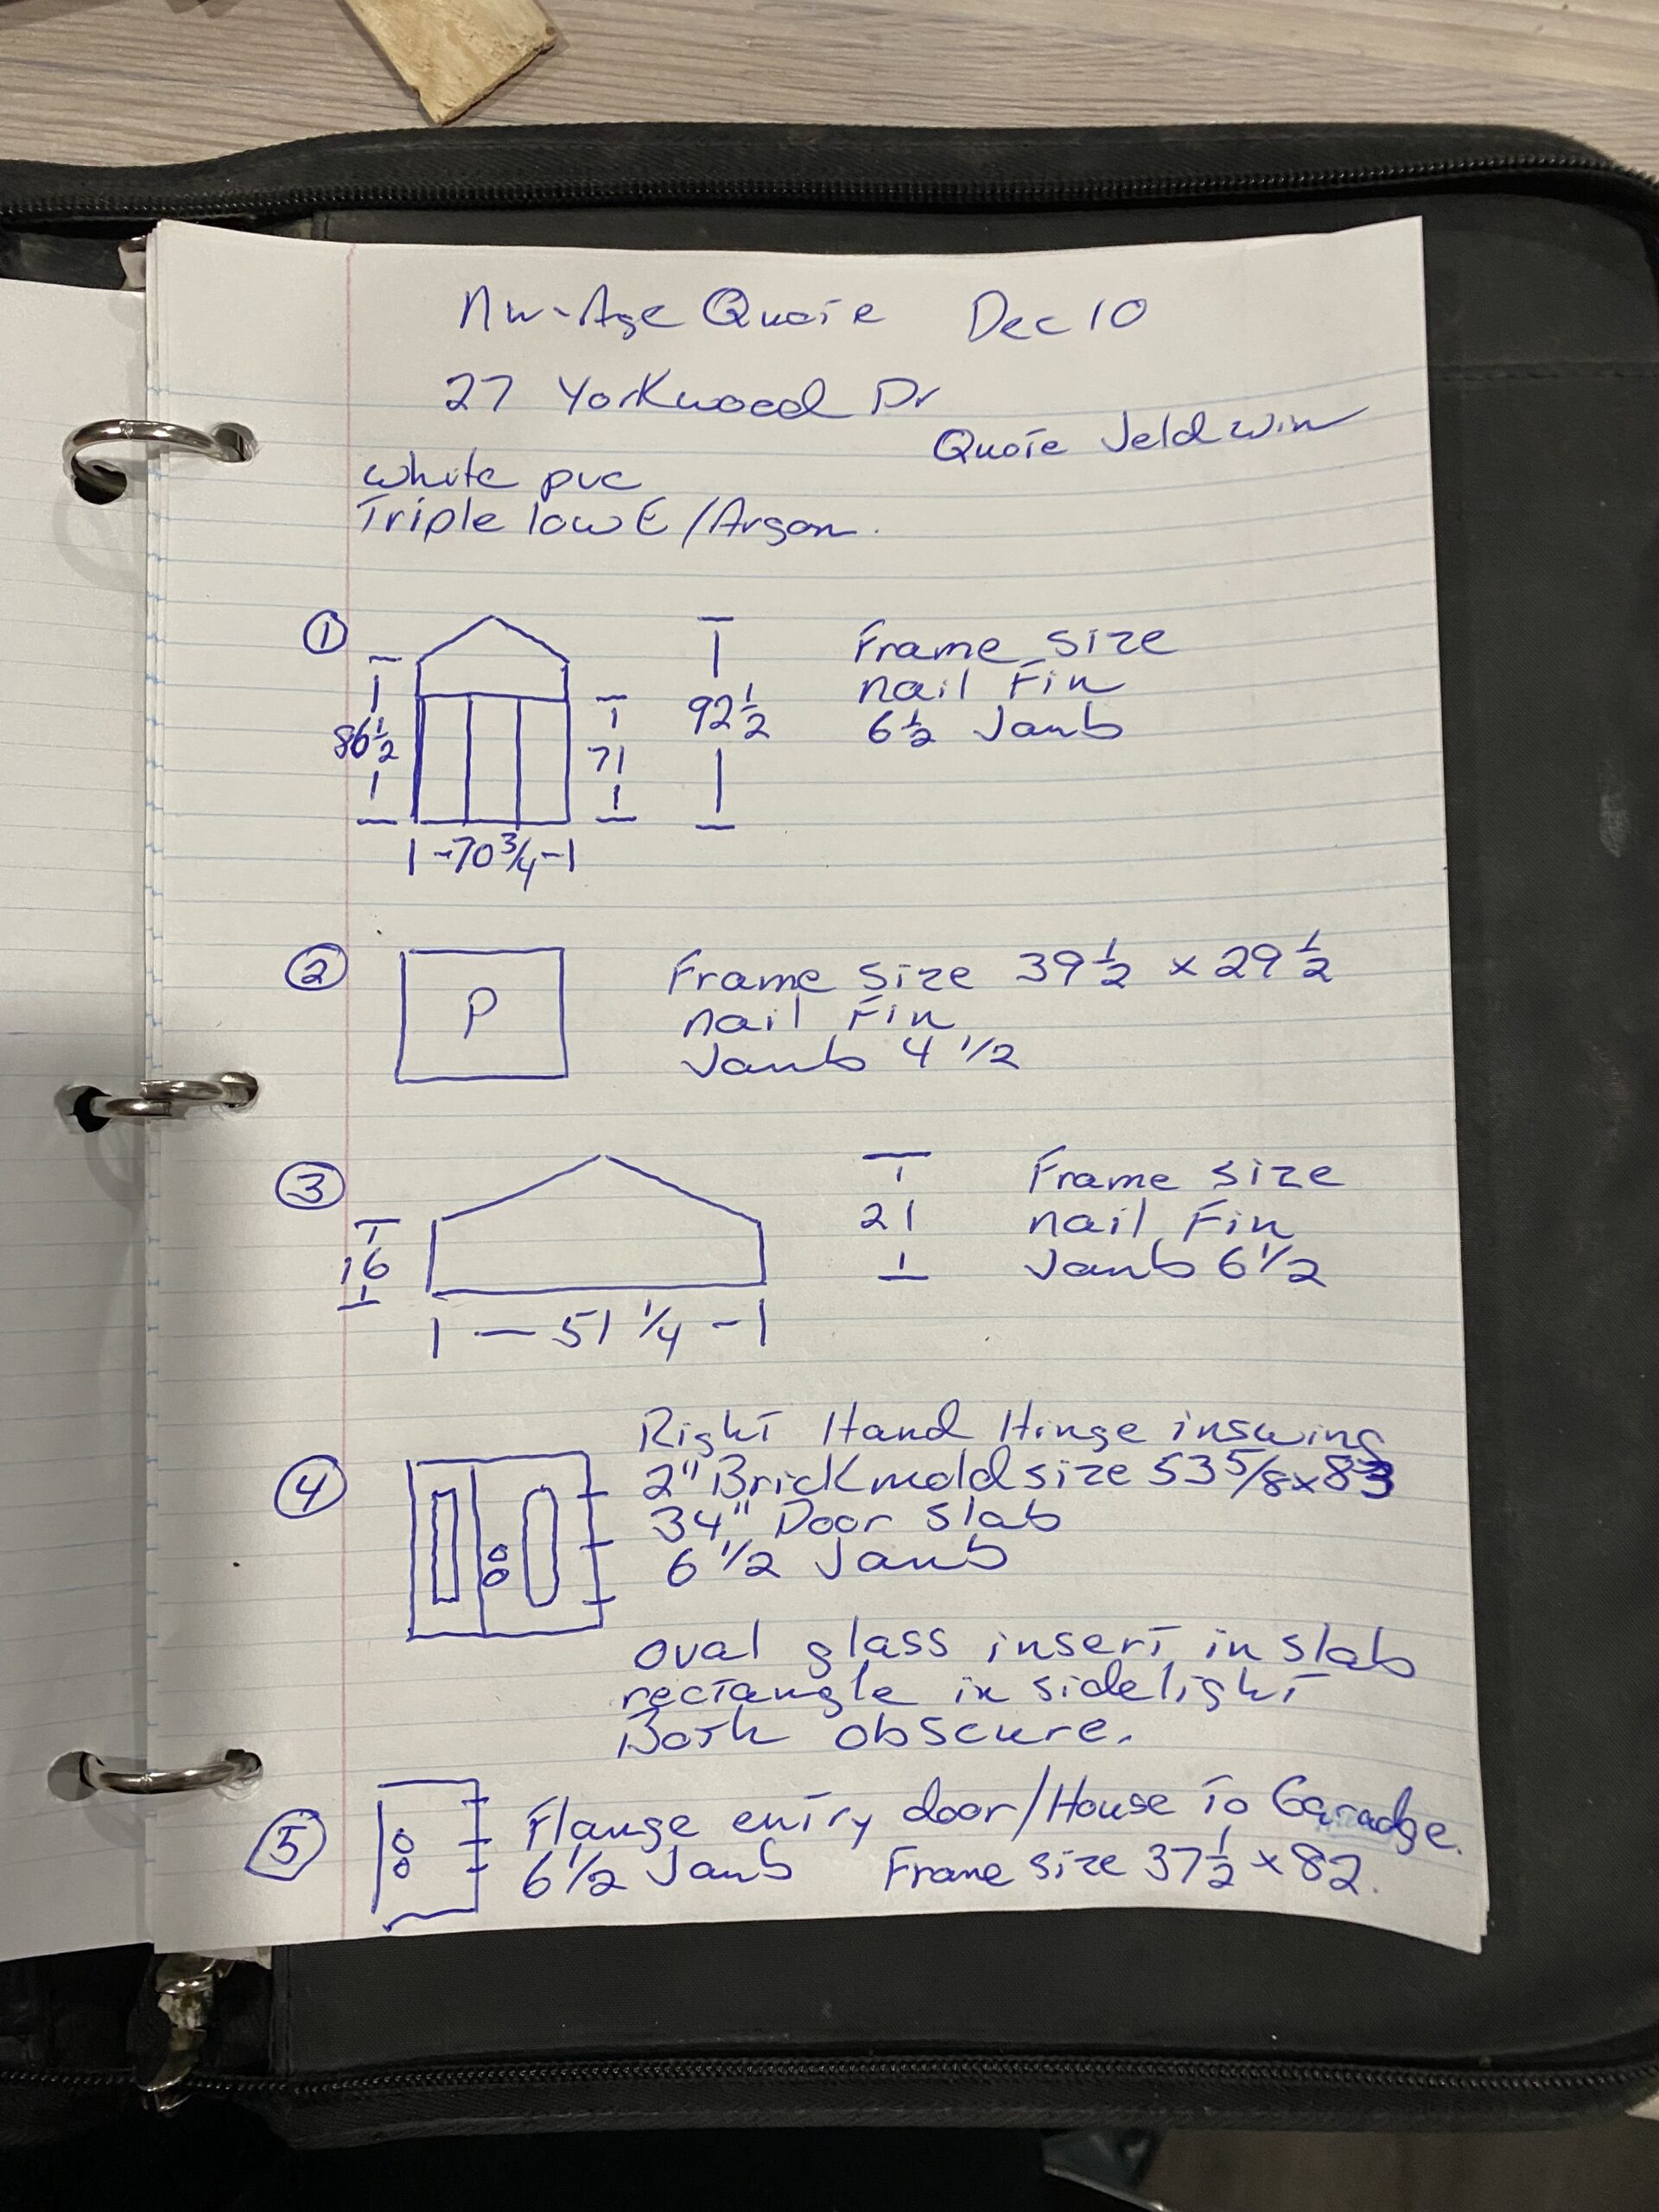 Nu-Age Quote Dec 10
27 Yorkwood Dr
Quote Jeldwin
white pvc
Triple low E/Argon.
① Frame size
nail Fin
6 1/2 Jamb
86 1/2
71
92 1/2
70 3/4
② P Frame size 39 1/2 x 29 1/2
nail Fin
Jamb 4 1/2
③ Frame size
nail Fin
Jamb 6 1/2
16
21
51 1/4
④ Right Hand Hinge inswing
2" Brickmold size 53 5/8 x 83
34" Door Slab
6 1/2 Jamb
oval glass insert in slab
rectangle in sidelight
Both obscure.
⑤ Flange entry door/House To Garadge.
6 1/2 Jamb Frame size 37 1/2 x 82.